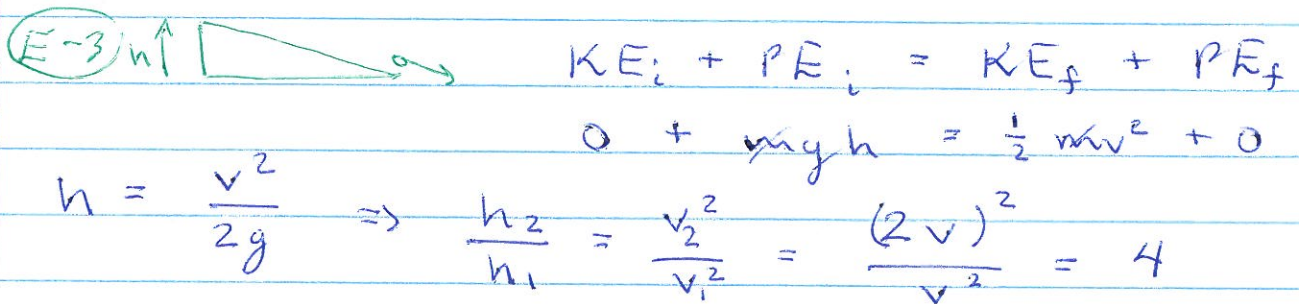 E-3 h↑ KEᵢ + PEᵢ = KE_f + PE_f
0 + mgh = ½ mv² + 0
h = v²/2g => h₂/h₁ = v₂²/v₁² = (2v)²/v² = 4